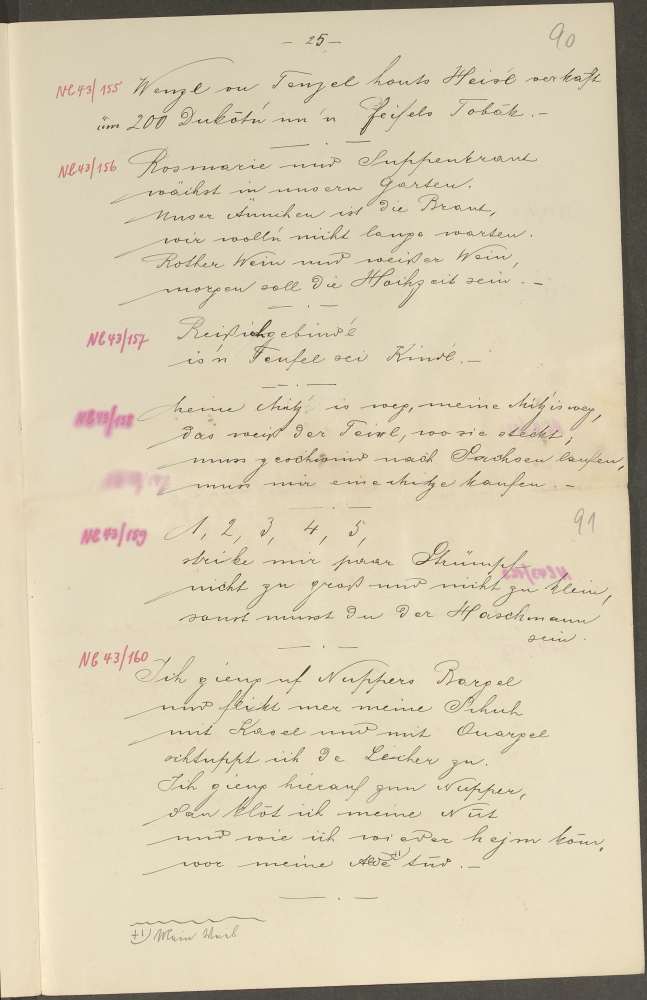 - 25 -
90
NB 43/155 Wenzl un Tenzel houts Heisl verkaft
üm 200 Dukotn un'n Pfeifels Tobak. -
NB 43/156 Rosmarie und Suppenkraut
wächst in unsern Garten.
Unser Ännchen ist die Braut,
wir wolln nicht lange warten.
Rother Wein und weißer Wein,
morgen soll die Hochzeit sein. -
NB 43/157 Reisichgebindl
is'n Teufel sei Kindl. -
NB 43/158 Meine Mütz' is weg, meine Mütz is weg,
das weiß der Teixl, wo sie steckt;
muss geschwind nach Sachsen laufen,
muss mir eine Mütze kaufen. -
91
NB 43/159 1, 2, 3, 4, 5,
strike mir paar Strümpf
nicht zu groß und nicht zu klein,
sonst musst du der Haschmann
sein.
NB 43/160 Ich gieng uf Nuppers Bargel
und flickt mer meine Schuh
mit Kasel und mit Quargel
schtuppt ich de Lecher zu.
Ich gieng hierauf zun Nupper,
dan klöt ich meine Nut
und wie ich wieder hejm kom,
wor meine Alde +1) tud. -
+1) Mein Weib